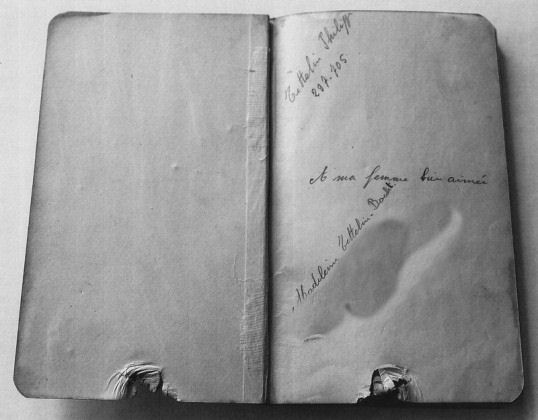 Tettelin Philipp
297.705
A ma femme bien aimée
Madeleine Tettelin-